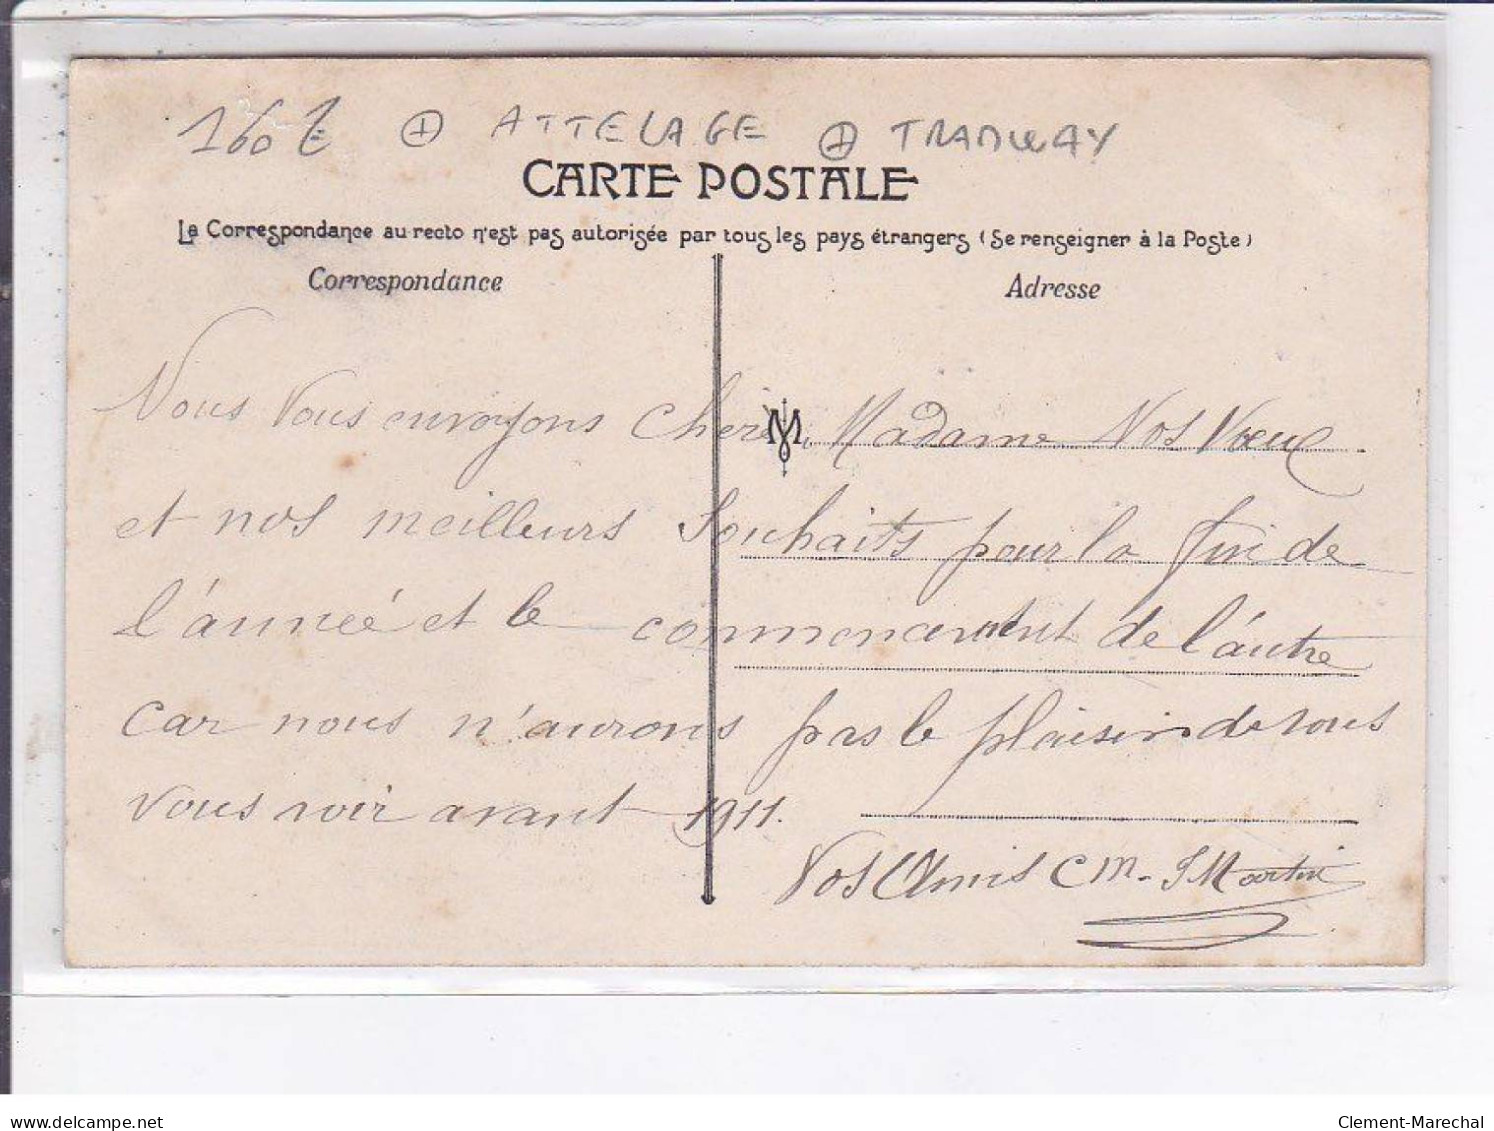 160 € + ATTELAGE + TRAMWAY
CARTE POSTALE
La Correspondance au recto n'est pas autorisée par tous les pays étrangers (Se renseigner à la Poste)
Correspondance
Adresse
Nous Vous envoyons Chere Madame Nos Vœux
et nos meilleurs Souhaits pour la fin de
l'année et le commencement de l'autre
car nous n'aurons pas le plaisir de vous
vous voir avant 1911.
Vos Amis C M. J Martin
www.delcampe.net
Clement-Marechal